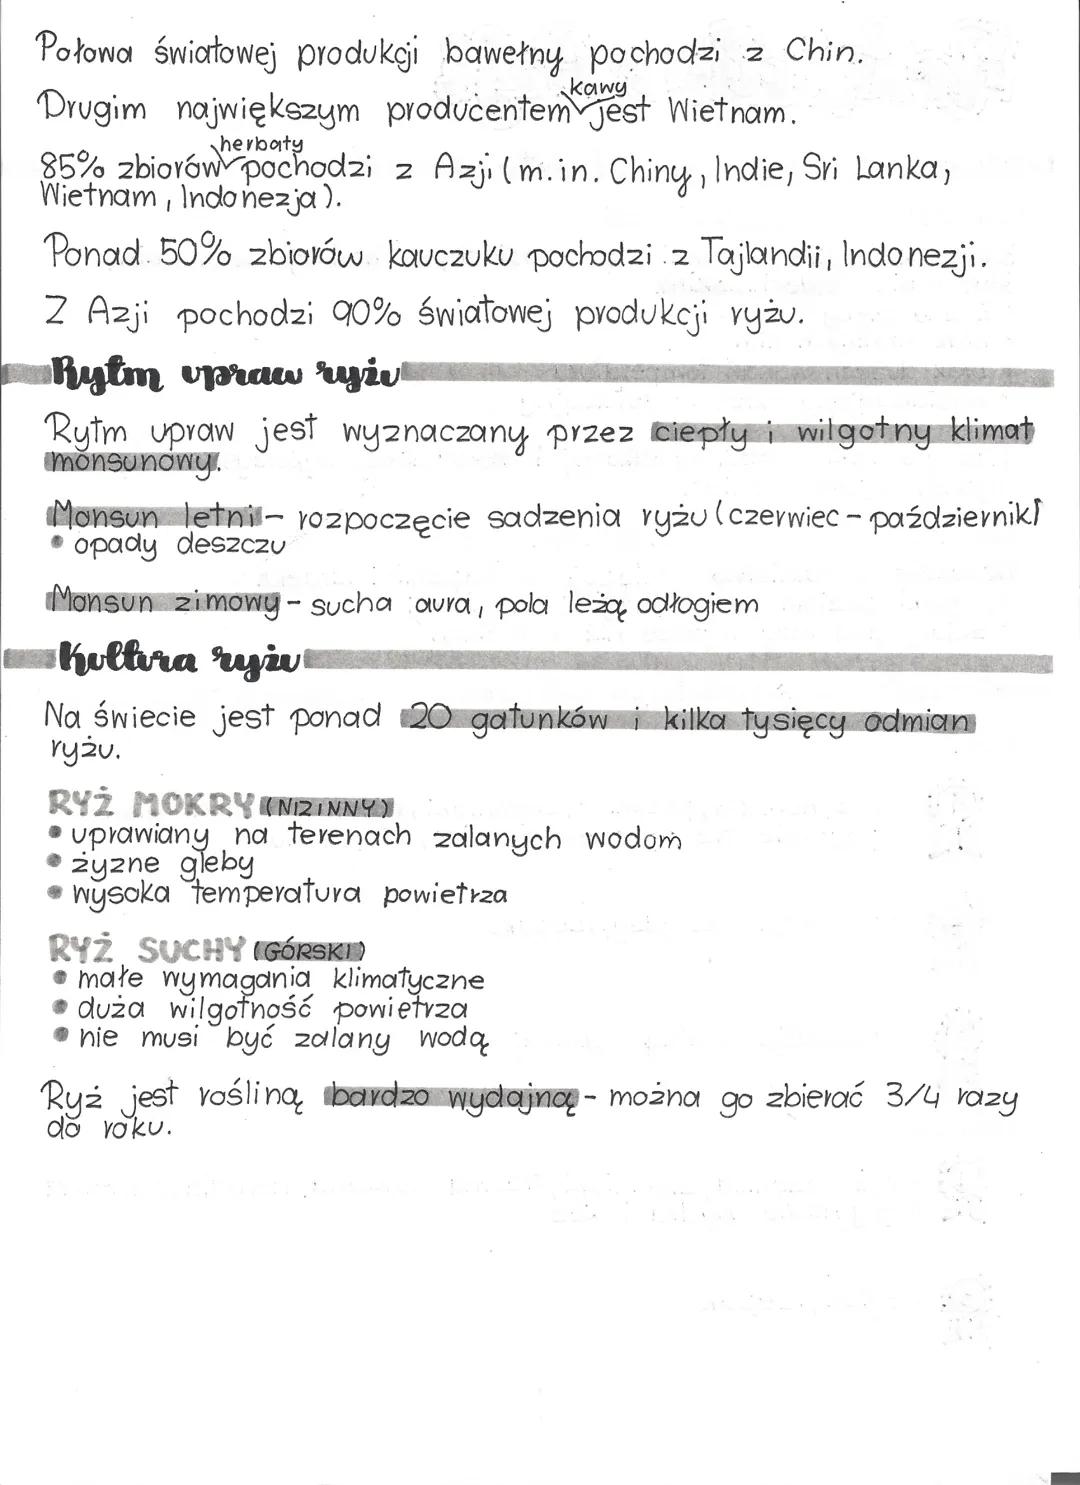 Połowa światowej produkcji bawełny pochodzi z Chin.
Drugim największym producentem kawy jest Wietnam.
85% zbiorów herbaty pochodzi z Azji (m.in. Chiny, Indie, Sri Lanka,
Wietnam, Indonezja).
Ponad 50% zbiorów kauczuku pochodzi z Tajlandii, Indonezji.
Z Azji pochodzi 90% światowej produkcji ryżu.
Rytm upraw ryżu
Rytm upraw jest wyznaczany przez ciepły i wilgotny klimat
monsunowy.
Monsun letni - rozpoczęcie sadzenia ryżu (czerwiec - październik)
• opady deszczu
Monsun zimowy - sucha aura, pola leżą odłogiem
Kultura ryżu
Na świecie jest ponad 20 gatunków i kilka tysięcy odmian
ryżu.
RYŻ MOKRY (NIZINNY)
• uprawiany na terenach zalanych wodom
• żyzne gleby
• wysoka temperatura powietrza
RYŻ SUCHY (GÓRSKI)
• małe wymagania klimatyczne
• duża wilgotność powietrza
• nie musi być zalany wodą
Ryż jest rośliną bardzo wydajną - można go zbierać 3/4 razy
do roku.